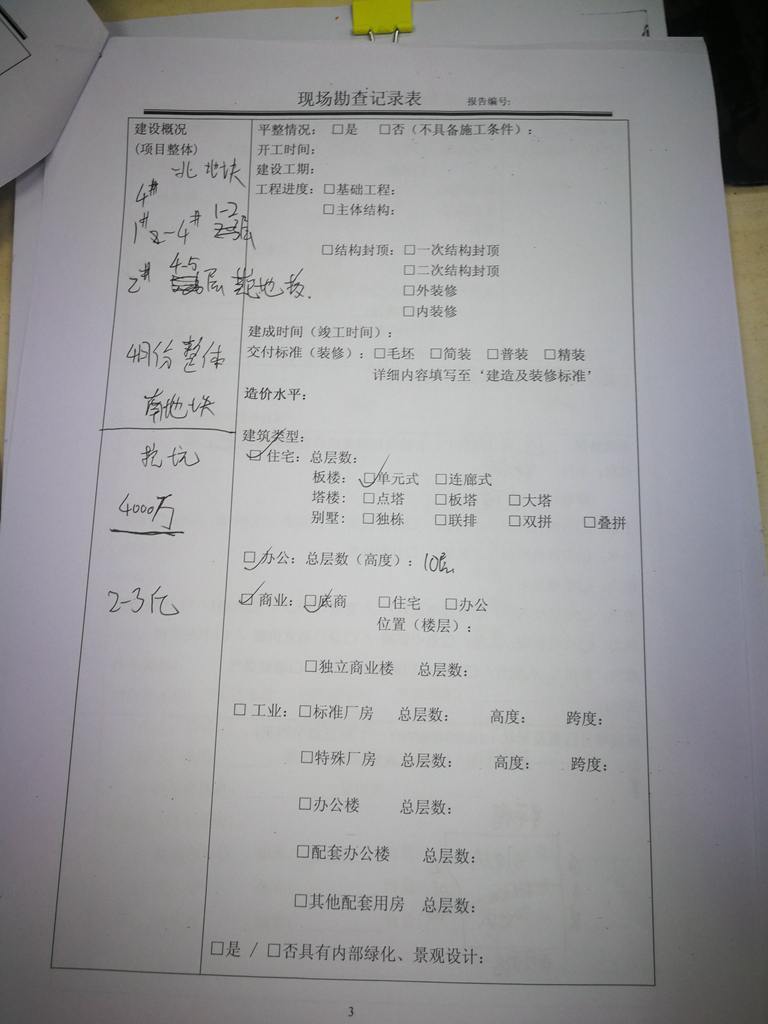 现场勘查记录表 报告编号:
建设概况
(项目整体)
北地块
4#
1#2-4# 1-2层
2# 4-5层 基地板.
4月份整体
南地块
挖坑
4000万
2-3亿
平整情况: □是 □否(不具备施工条件):
开工时间:
建设工期:
工程进度: □基础工程:
□主体结构:
□结构封顶: □一次结构封顶
□二次结构封顶
□外装修
□内装修
建成时间(竣工时间):
交付标准(装修): □毛坯 □简装 □普装 □精装
详细内容填写至‘建造及装修标准’
造价水平:
建筑类型:
☑住宅: 总层数:
板楼: ☑单元式 □连廊式
塔楼: □点塔 □板塔 □大塔
别墅: □独栋 □联排 □双拼 □叠拼
☑办公: 总层数(高度): 10层
☑商业: ☑底商 □住宅 □办公
位置(楼层):
□独立商业楼 总层数:
□工业: □标准厂房 总层数: 高度: 跨度:
□特殊厂房 总层数: 高度: 跨度:
□办公楼 总层数:
□配套办公楼 总层数:
□其他配套用房 总层数:
□是 / □否具有内部绿化、景观设计:
3